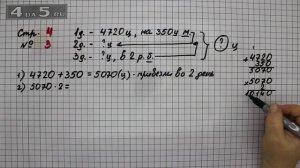 4АПS.RU
Стр. 4
№ 3
1д. - 4720ц, на 350ц м
2д. - ?ц
3д. - ?ц, в 2 р. б.
? ц
1) 4720 + 350 = 5070(ц) - привезли во 2 день
2) 5070 · 2 =
+ 4720
350
5070
× 5070
2
10140